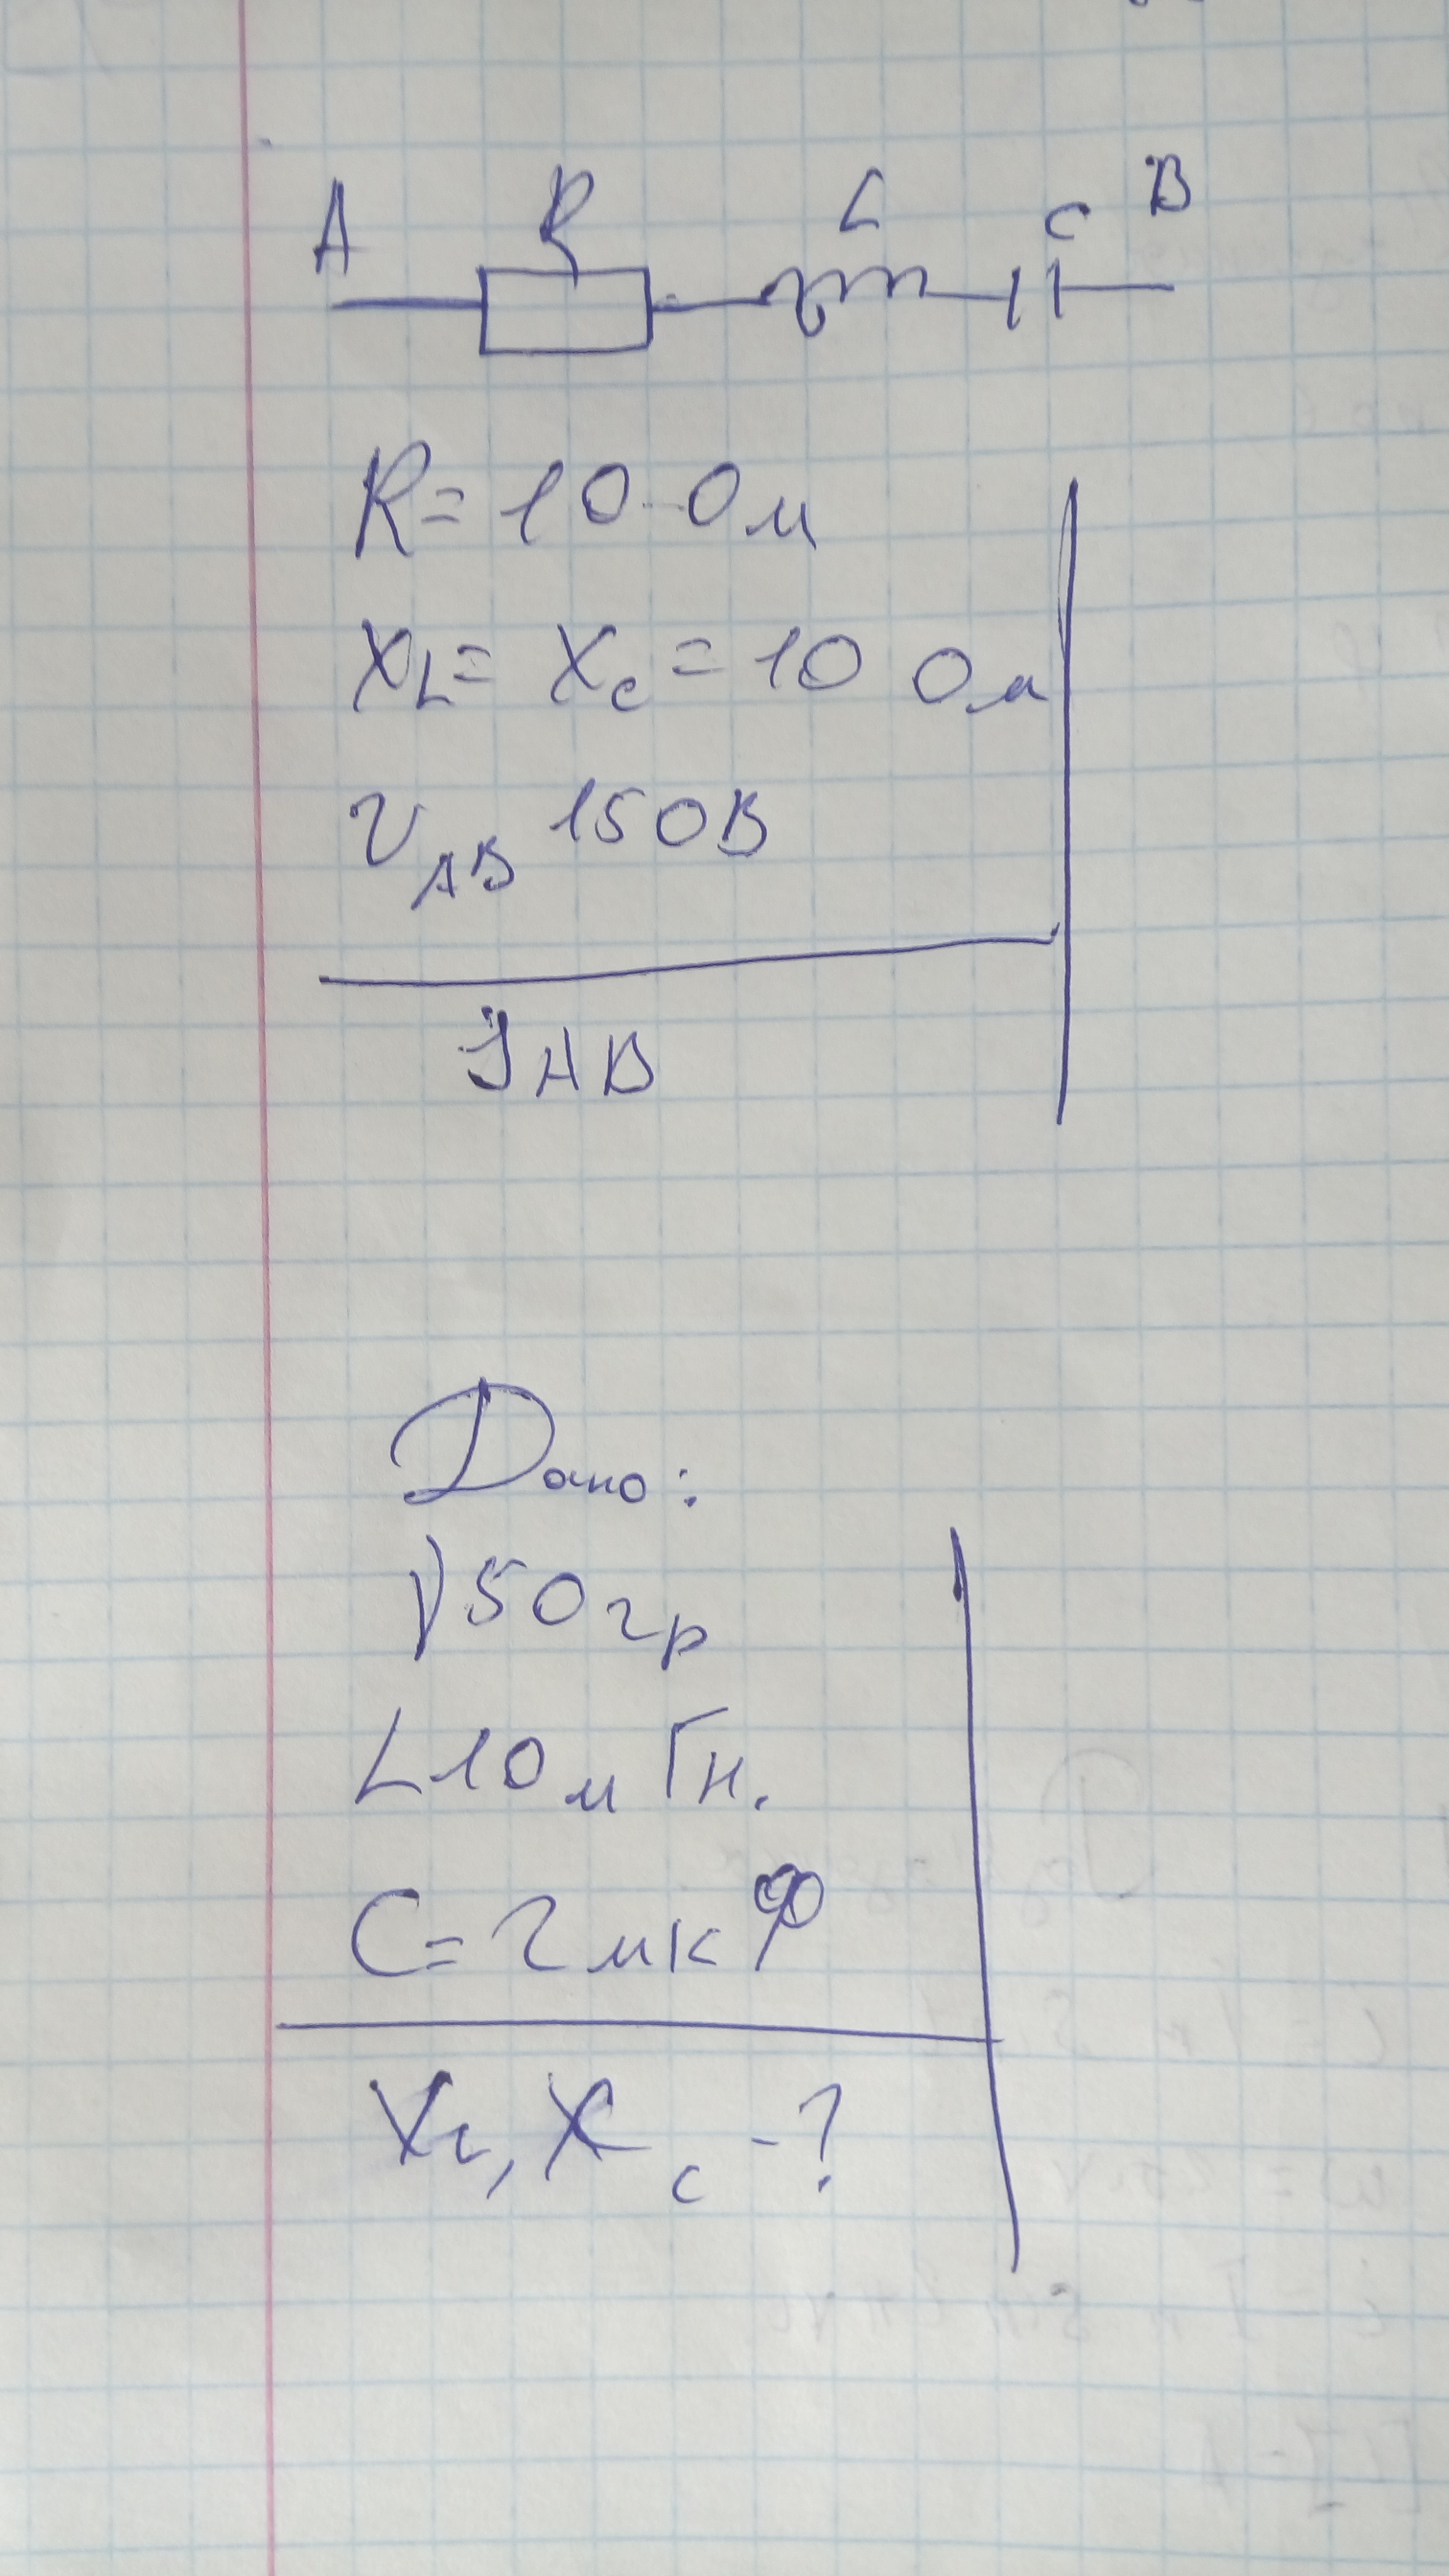 A R L C B
R = 10 Ом
XL = Xc = 10 Ом
UAB 150В
JAB
Дано:
ν 50 гр
L 10 м Гн.
C = 2 мк Ф
XL, Xc - ?